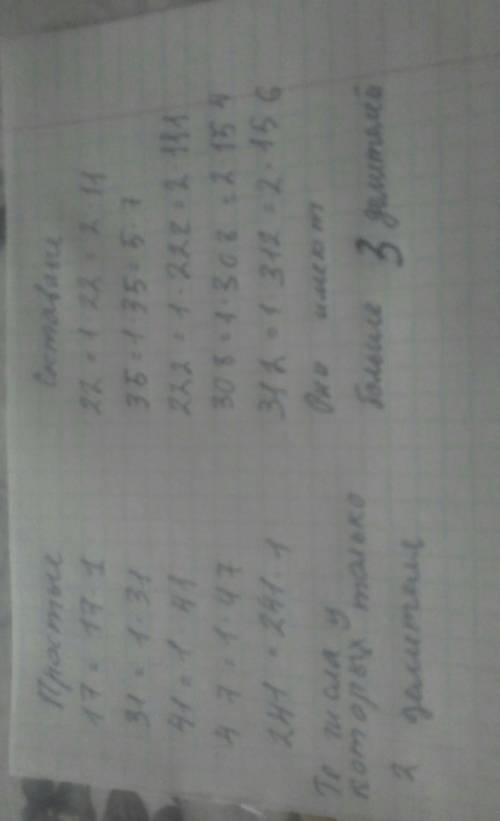 Простые
17 = 17 · 1
31 = 1 · 31
41 = 1 · 41
47 = 1 · 47
241 = 241 · 1
Те числа у
которых только
2 делителя
Составные
22 = 1 22 = 2 11
35 = 1 35 = 5 · 7
222 = 1 · 222 = 2 111
308 = 1 · 308 = 2 154
312 = 1 312 = 2 · 156
Оно имеют
больше 3 делителей